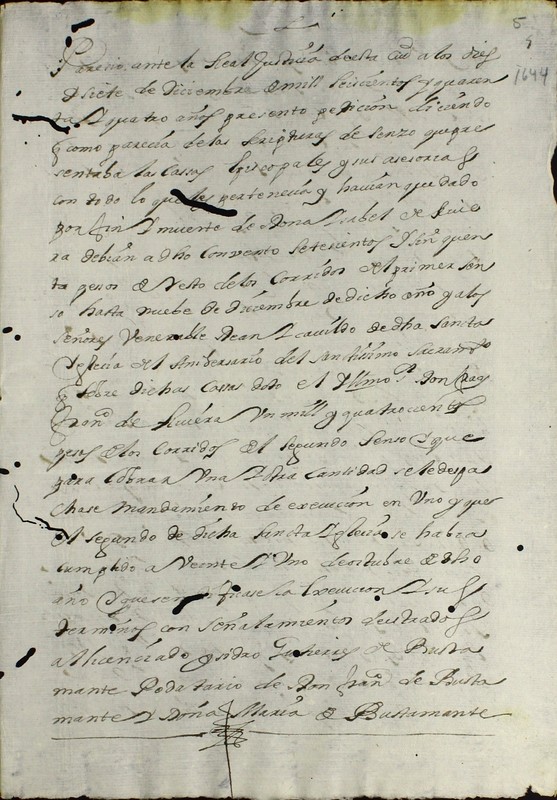 5
5
1644
Parecio ante la Real Justicia desta Ciud a los dies
Y siete de Diciembre de mill seiscientos y quaren
ta Y quatro años presento peticion diciendo
q como parecia de las scripturas de senzo que pre
sentaba las Cassas Episcopales y sus asesorias
con todo lo que les pertenecia y havian quedado
por fin Y muerte de Doña Ysabel de Rive
ra debian a dho Convento setesentos Y sinquen
ta pesos de resto de los Corridos del primer sen
so hasta nuebe de Diziembre de dicho año y a los
señores Venerable Dean Y Cavildo de dha Santa
Yglecia del Aniversario del Santissimo Sacramto
q sobre dichas Cassas doto el Yllmo Sr Don fray
de Rivera Un mill y quatrocientos
pesos de los Corridos del segundo senso Y que
para cobrar Una Y otra Cantidad se le despa
chase mandamiento de execucion en Uno y que
el segundo de dicha Sancta Yglecia se habia
cumplido a Veente Y Uno de octubre de dho
año Y que se notificase la Execucion Y sus
terminos con señalamiento de estrados
al licenciado Ysidro Gutierres de Busta
mante Podatario de Don Fran de Busta
mante Y Doña Maria de Bustamante